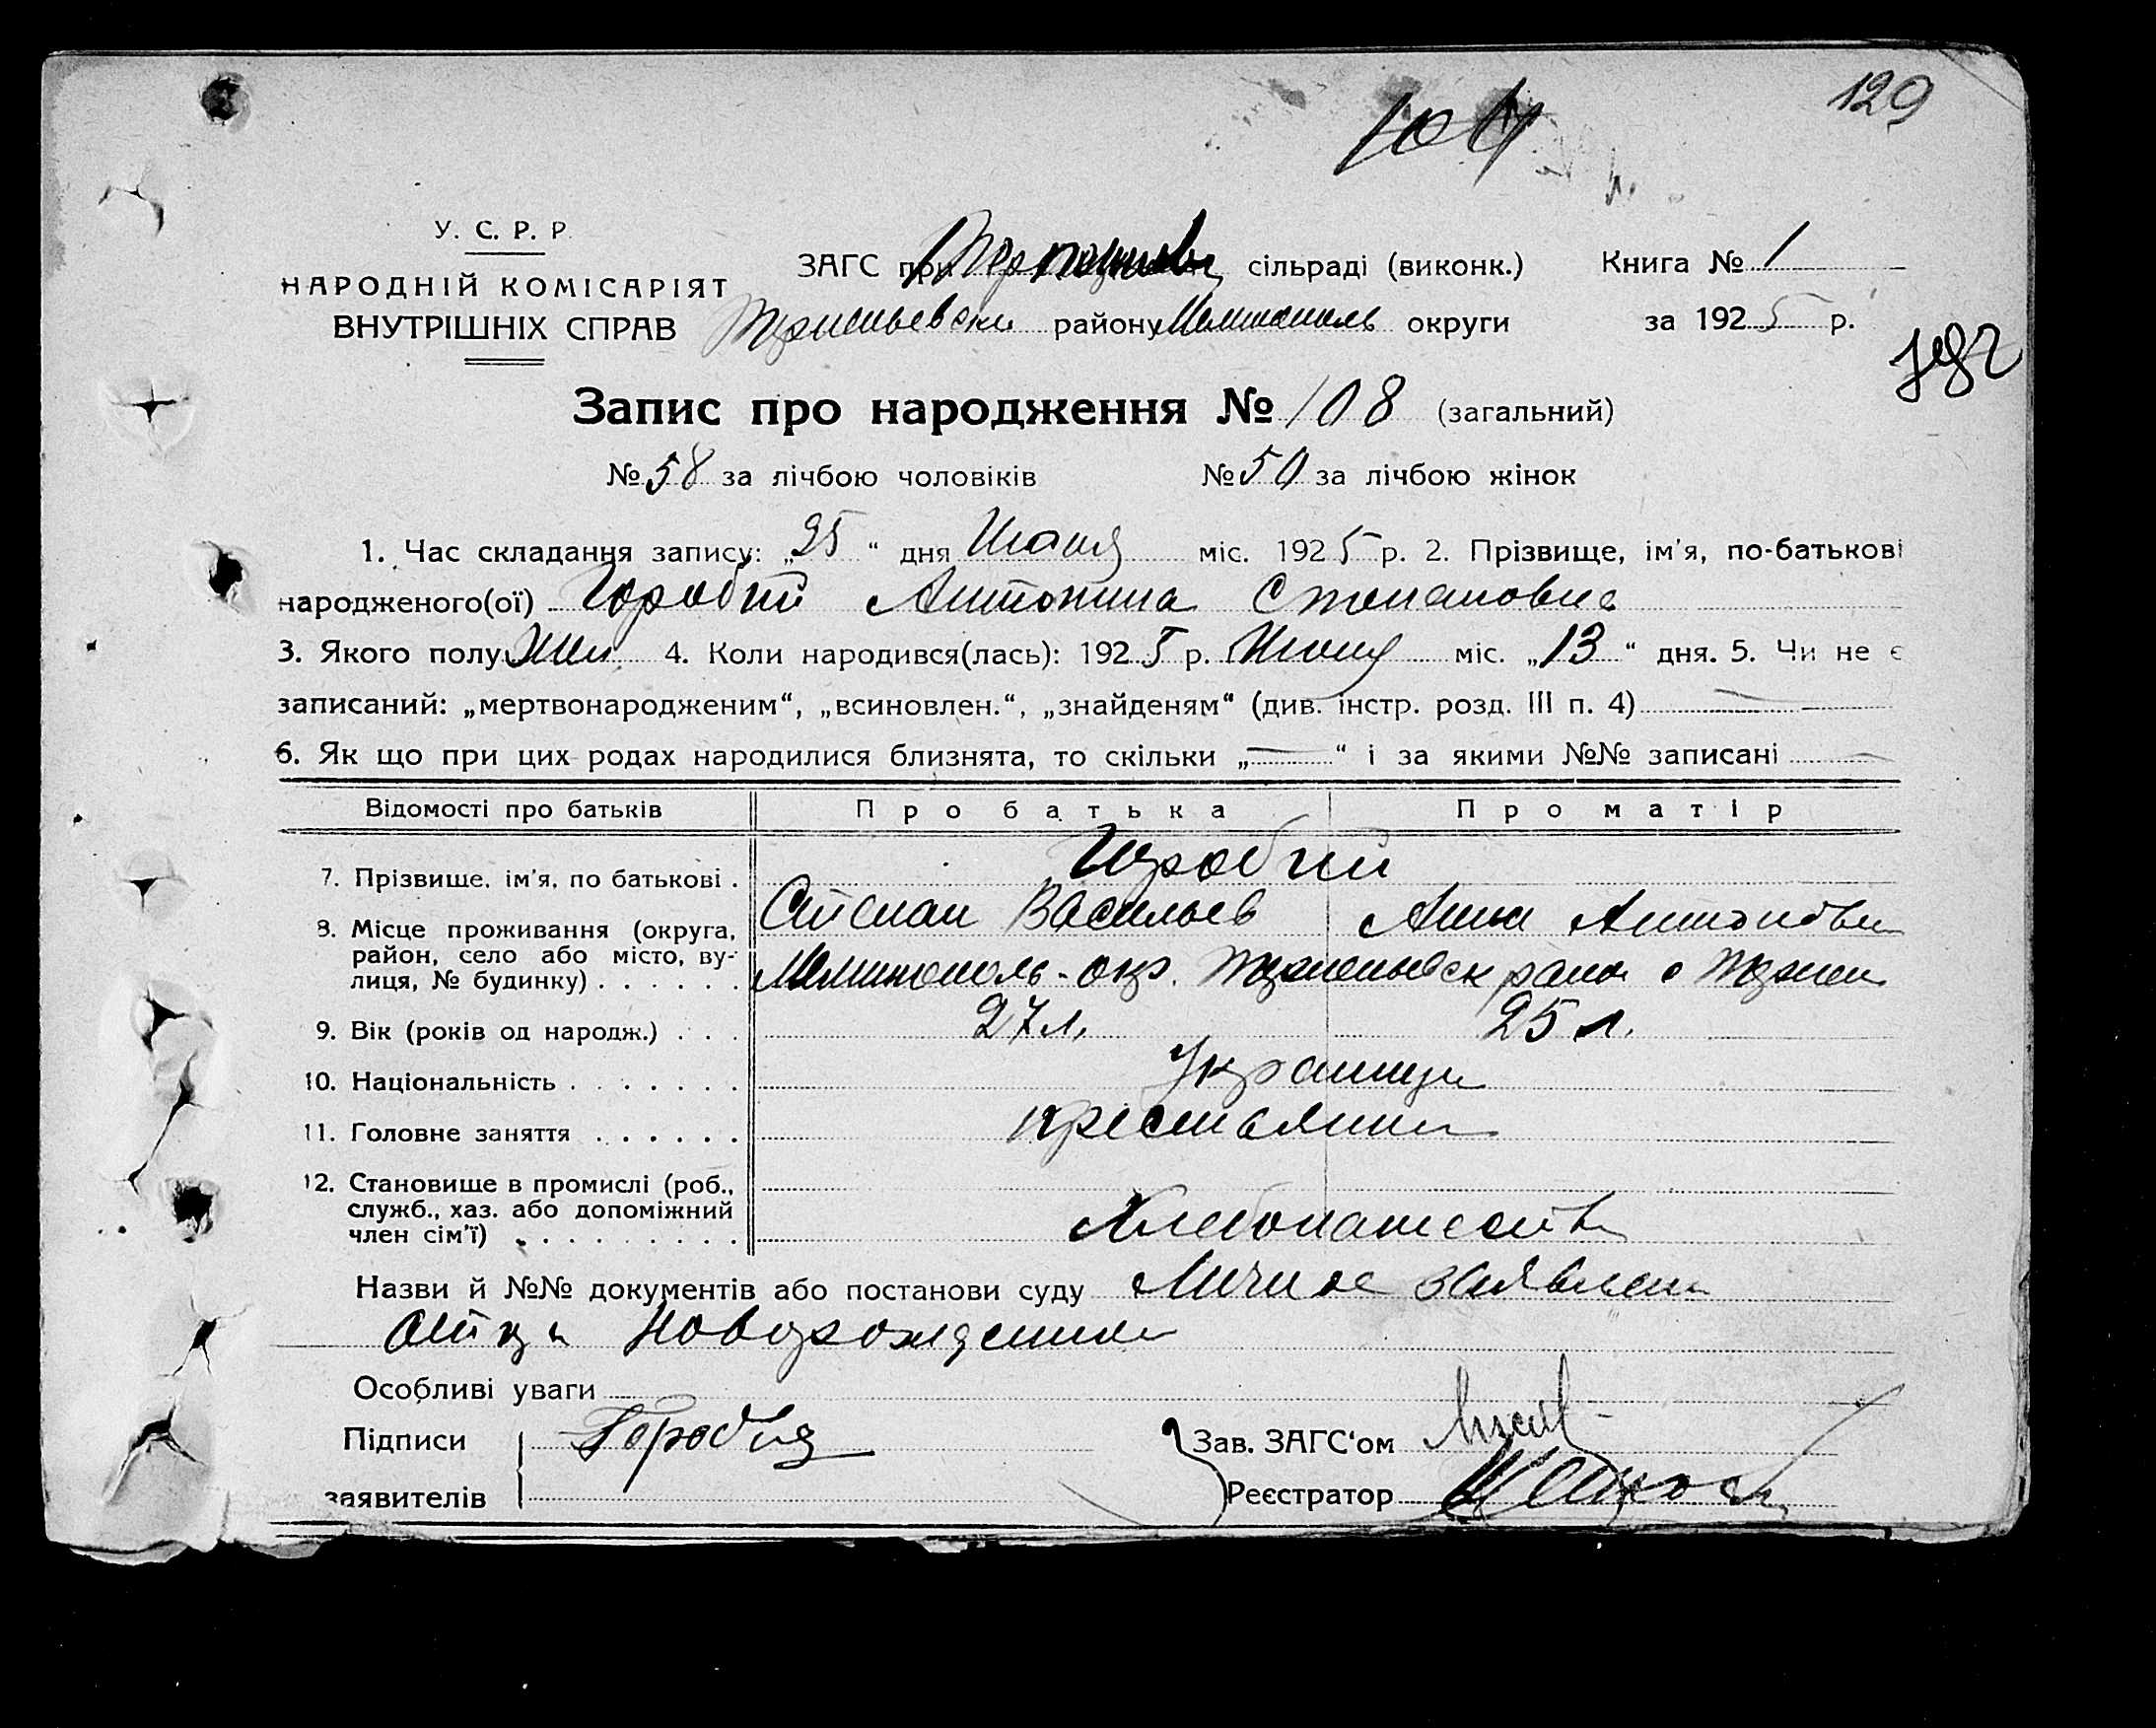 129
104
У. С. Р. Р.
НАРОДНІЙ КОМІСАРІЯТ
ВНУТРІШНІХ СПРАВ
ЗАГС при сільраді (виконк.) Книга № 1
району Мелитополь округи за 1925 р.
Запис про народження № 108 (загальний)
№ 58 за лічбою чоловіків № 50 за лічбою жінок
1. Час складання запису: „25“ дня Июня міс. 1925 р. 2. Прізвище, ім'я, по-батькові
народженого(ої) Горобий Антонина Степановна
3. Якого полу Жен. 4. Коли народився(лась): 1925 р. Июня міс. „13“ дня. 5. Чи не є
записаний: „мертвонародженим“, „всиновлен.“, „знайденям“ (див. інстр. розд. III п. 4)
6. Як що при цих родах народилися близнята, то скільки „—“ і за якими №№ записані —
Відомості про батьків Про батька Про матір
7. Прізвище, ім'я, по батькові . Горобий
Степан Васильев Анна Антоновн
8. Місце проживання (округа,
район, село або місто, ву-
лиця, № будинку) . . . . . . Мелитополь-окр. район с
9. Вік (років од народж.) . . . 27 л. 25 л.
10. Національність . . . . . . . Украинцы
11. Головне заняття . . . . . . крестьянин
12. Становище в промислі (роб.,
служб., хаз. або допоміжний
член сім'ї) . . . . . . . . . Хлебопашество
Назви й №№ документів або постанови суду Личное заявлен
отца новорожденной
Особливі уваги
Підписи
заявителів
Зав. ЗАГС'ом
Реєстратор